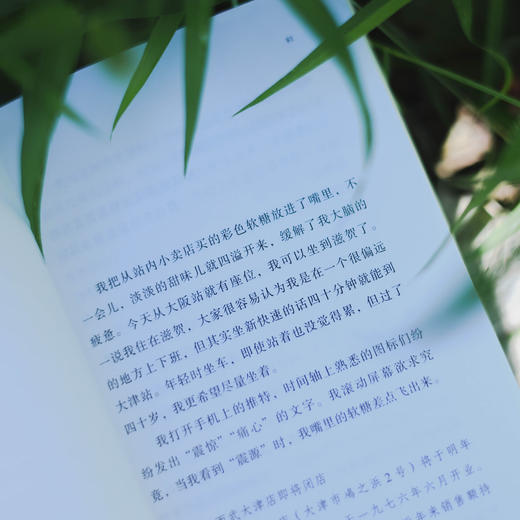 我把从站内小卖店买的彩色软糖放进了嘴里，不
一会儿，淡淡的甜味儿就四溢开来，缓解了我大脑的
疲惫。今天从大阪站就有座位，我可以坐到滋贺了。
一说我住在滋贺，大家很容易认为我是在一个很偏远
的地方上下班，但其实坐新快速的话四十分钟就能到
大津站。年轻时坐车，即使站着也没觉得累，但过了
四十岁，我更希望尽量坐着。
我打开手机上的推特，时间轴上熟悉的图标们纷
纷发出“震惊”“痛心”的文字。我滚动屏幕欲求究
竟，当我看到“震源”时，我嘴里的软糖差点飞出来。
西武大津店即将闭店
店（大津市鳰之浜2号）将于明年
于一九七六年六月开业。
年来销售额持